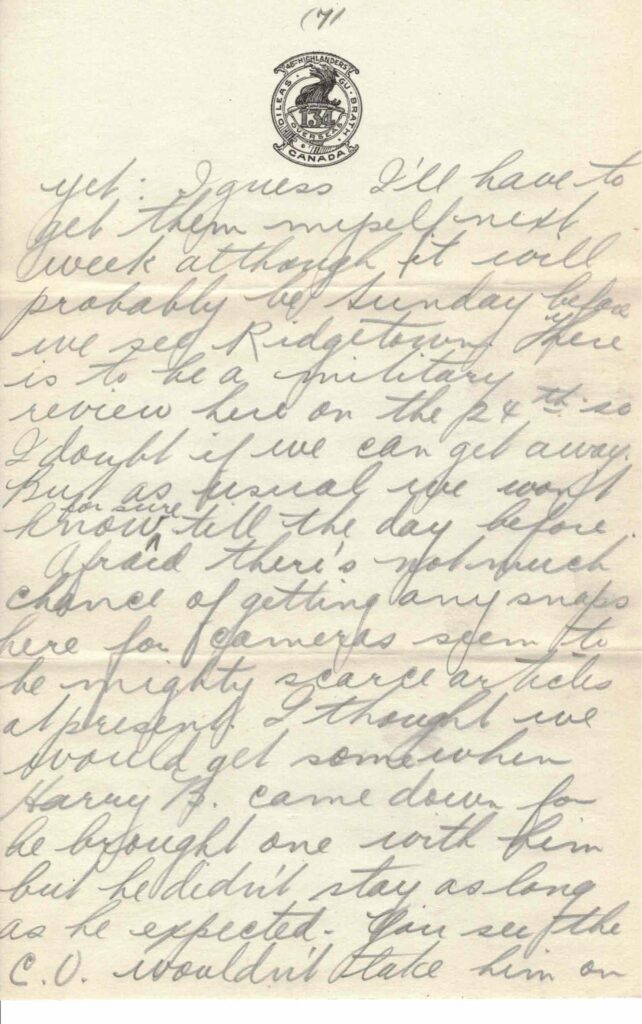 (7)
48TH HIGHLANDERS
DILEAS GU BRATH
134
OVERSEAS
CANADA
yet. I guess I'll have to
get them myself next
week although it will
probably be Sunday before
we see Ridgetown. There
is to be a military
review here on the 24th so
I doubt if we can get away.
But as usual we won't
know for sure till the day before.
Afraid there's not much
chance of getting any snaps
here for cameras seem to
be mighty scarce articles
at present. I thought we
would get some when
Harry B. came down for
he brought one with him
but he didn't stay as long
as he expected. You see the
C.O. wouldn't take him on